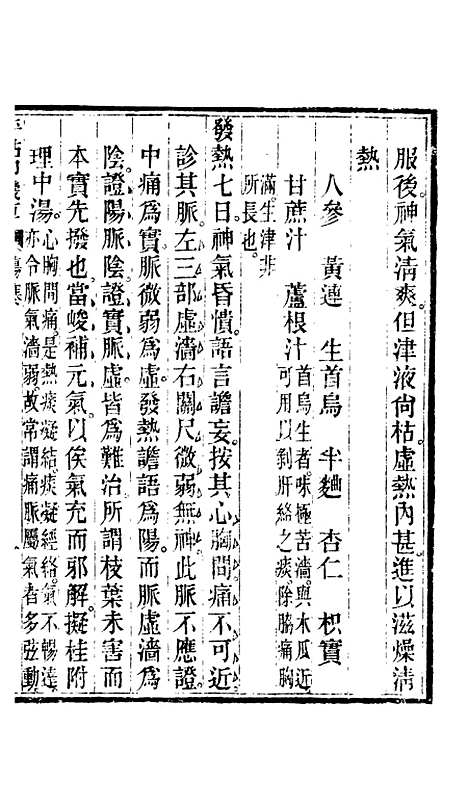 服後神氣清爽但津液尙枯虛熱內甚進以滋燥淸
熱
人參　黃連　生首烏　半麯　杏仁　枳實
甘蔗汁　蘆根汁首烏生者味極苦濇與木瓜近可用以到肝絡之痰除脇痛胸
滿生津非所長也
發熱七日神氣昏憒語言譫妄按其心胸間痛不可近
診其脈左三部虛濇右關尺微弱無神此脈不應證
中痛爲實脈微弱爲虛發熱譫語爲陽而脈虛濇爲
陰證陽脈陰證實脈虛皆爲難治所謂枝葉未害而
本實先撥也當峻補元氣以俟氣充而邪解擬桂附
理中湯心胸間痛是熱痰凝結痰凝經絡氣不暢達亦令脈氣濇弱故常謂痛脈屬氣者多弦動